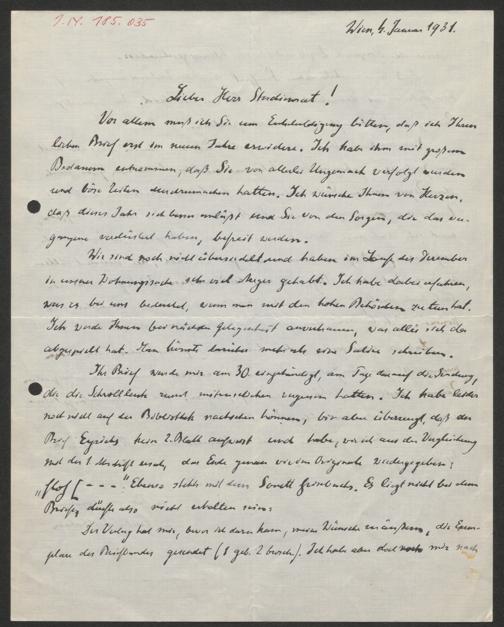 I.N. 185.035
Wien, 4. Januar 1931.
Lieber Herr Studienrat!
Vor allem muß ich Sie um Entschuldigung bitten, daß ich Ihren
lieben Brief erst im neuen Jahre erwidere. Ich habe ihm mit großem
Bedauern entnommen, daß Sie von allerlei Ungemach verfolgt wurden
und böse Zeiten durchzumachen hatten. Ich wünsche Ihnen von Herzen,
daß dieses Jahr sich besser anläßt und Sie von den Sorgen, die das ver-
gangene verdüstert haben, befreit werden.
Wir sind noch nicht übersiedelt und haben im Laufe des Dezember
in unserer Wohnungssache sehr viel Ärger gehabt. Ich habe dabei erfahren,
was es bei uns bedeutet, wenn man mit den hohen Behörden zu tun hat.
Ich werde Ihnen bei nächster Gelegenheit anvertrauen, was alles sich da
abgespielt hat. Man könnte darüber mehr als eine Satire schreiben.
Ihr Brief wurde mir am 30. eingehändigt, am Tage darauf die Sendung,
die die Schrollleute zuerst mitzuschicken vergessen hatten. Ich habe leider
noch nicht auf der Bibliothek nachsehen können, bin aber überzeugt, daß der
Brief Eyrichs kein 2. Blatt aufweist und habe, wie ich aus der Vergleichung
mit der 1. Abschrift ersah, das Ende genau wie im Originale wiedergegeben:
"[- - -" Ebenso steht's mit dem Sonett. Es liegt nicht bei dem
Briefe, dürfte also nicht erhalten sein.
Der Verlag hat mir, bevor ich dazu kam, meine Wünsche zu äußern, die Exem-
plare des Briefbandes gesendet (8 geb. 2 brosch.). Ich habe aber doch noch mir nach